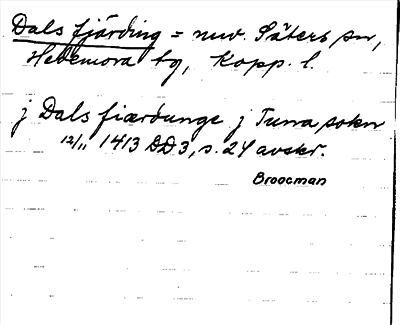 Dals fjärding = nuv. Säters sn,
Hedemora tg, Kopp. l.
j Dals fiærdunge j Tuna sokn
12/11 1413 DD3, s. 24 avskr.
Broocman